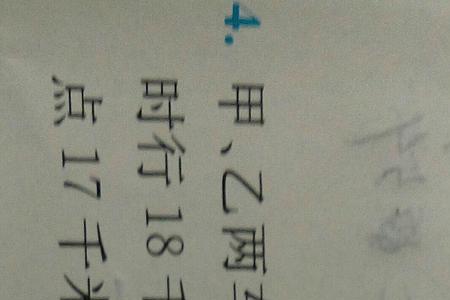 4. 甲、乙两
时行 18 千
点 17 千米